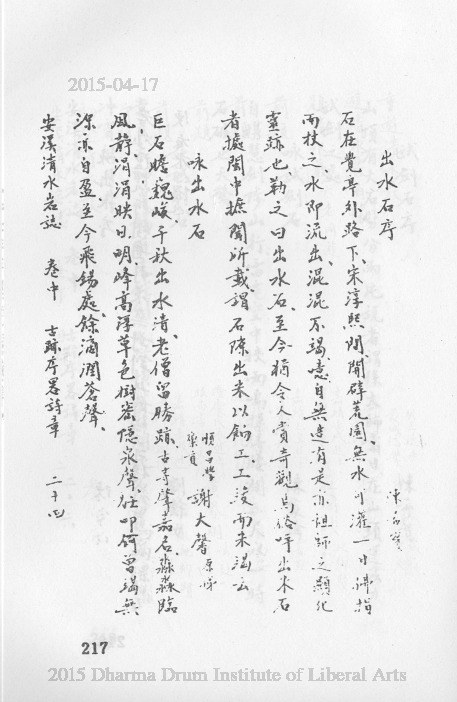 2015-04-17
出水石序
石在覺亭外路下、宋淳熙間、開闢荒園、無水可灌一日
而杖之、水即流出、混混不竭、噫自無造有是亦祖師之顯化
靈跡也、勒之曰出水石、至今猶令人賞奇觀焉俗呼出米石
者據閩中摭聞所載、謂石隙出米以餉工、工竣而米竭云
咏出水石
順昌學 謝大馨
巨石瞻巍峻、千秋出水清、老僧留勝跡、古寺聲嘉名淼淼臨
風靜、涓涓映日明、峰高浮草色樹密隱泉聲、叩何曾竭無
深亦自盈、至今飛錫處、餘滴潤蒼聲、
安溪清水岩誌 卷中 古跡序畧詩章 二十四
217
2015 Dharma Drum Institute of Liberal Arts